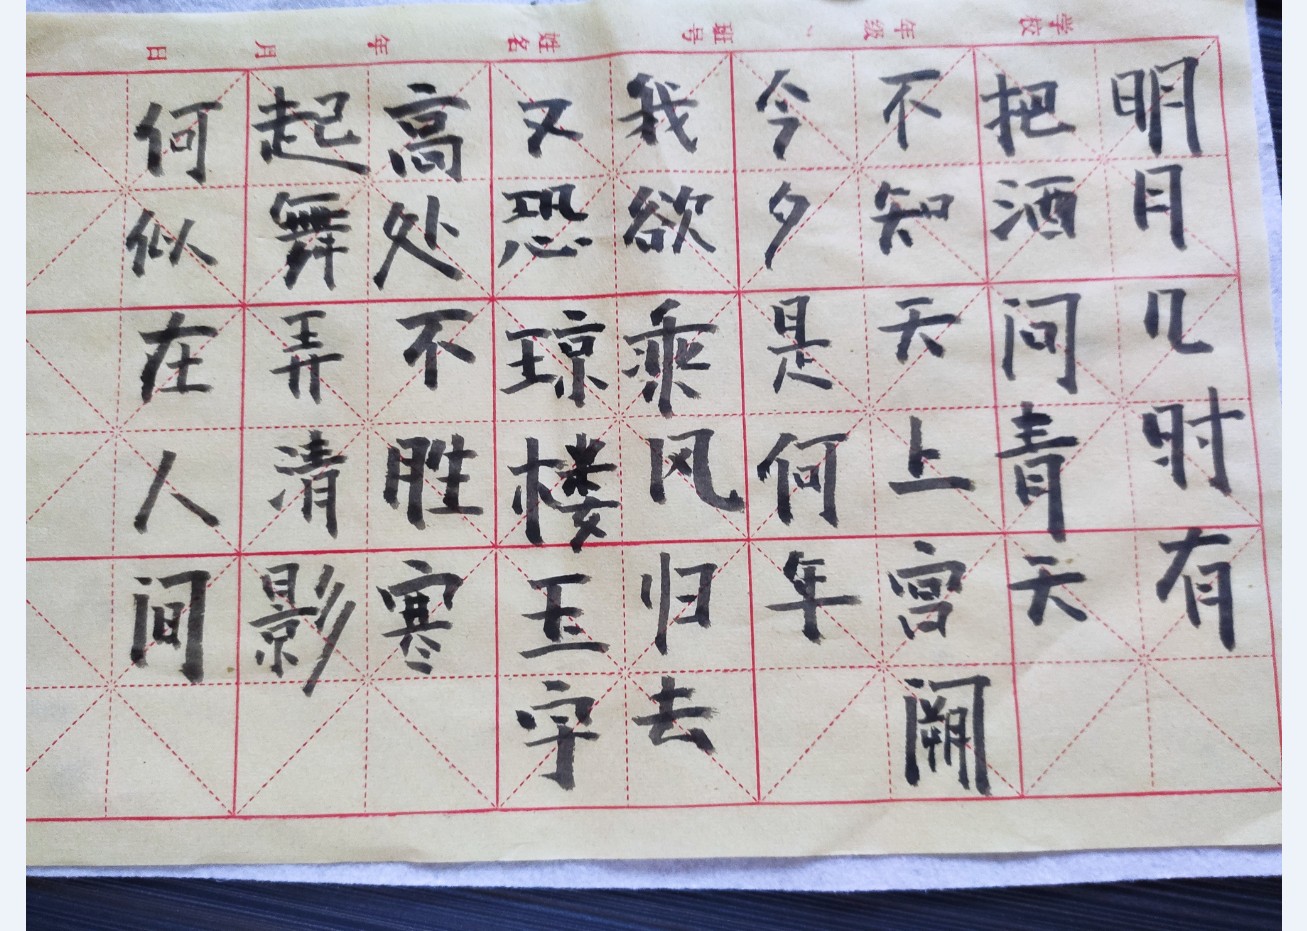 学校 年级 班号 姓名 年 月 日
明月几时有
把酒问青天
不知天上宫阙
今夕是何年
我欲乘风归去
又恐琼楼玉宇
高处不胜寒
起舞弄清影
何似在人间